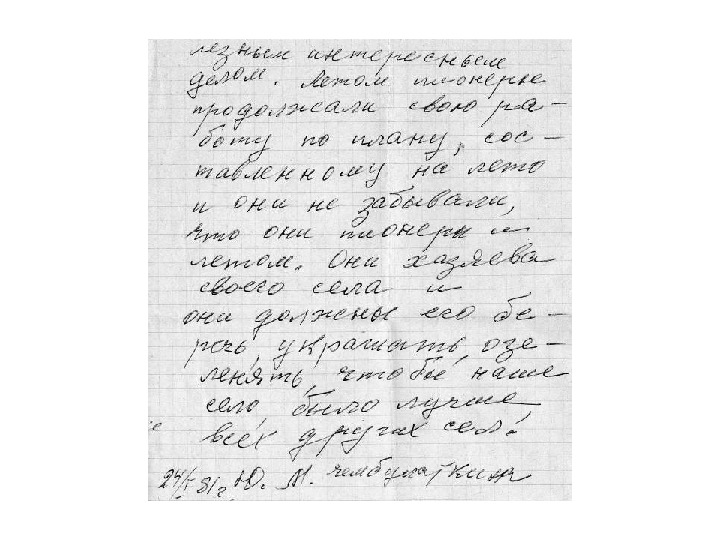 лезным интересным
делом. Летом пионеры
продолжали свою ра-
боту по плану, сос-
тавленному на лето
и они не забывали,
что они пионеры и
летом. Они хазяева
своего села и
они должны его бе-
речь, украшать, озе-
ленять, чтобы наше
село, было лучше
всех других сел!
Ю. М.